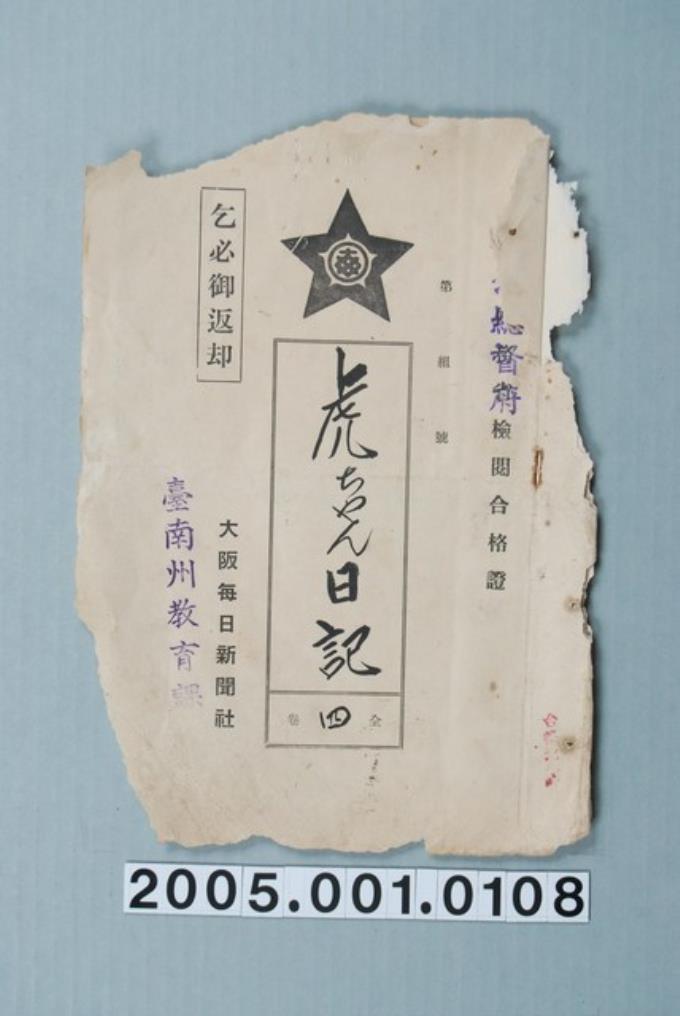 總督府檢閱合格證
第 組 號
虎ちゃん日記
全四卷
乞必御返却
大阪每日新聞社
臺南州教育課
2005.001.0108